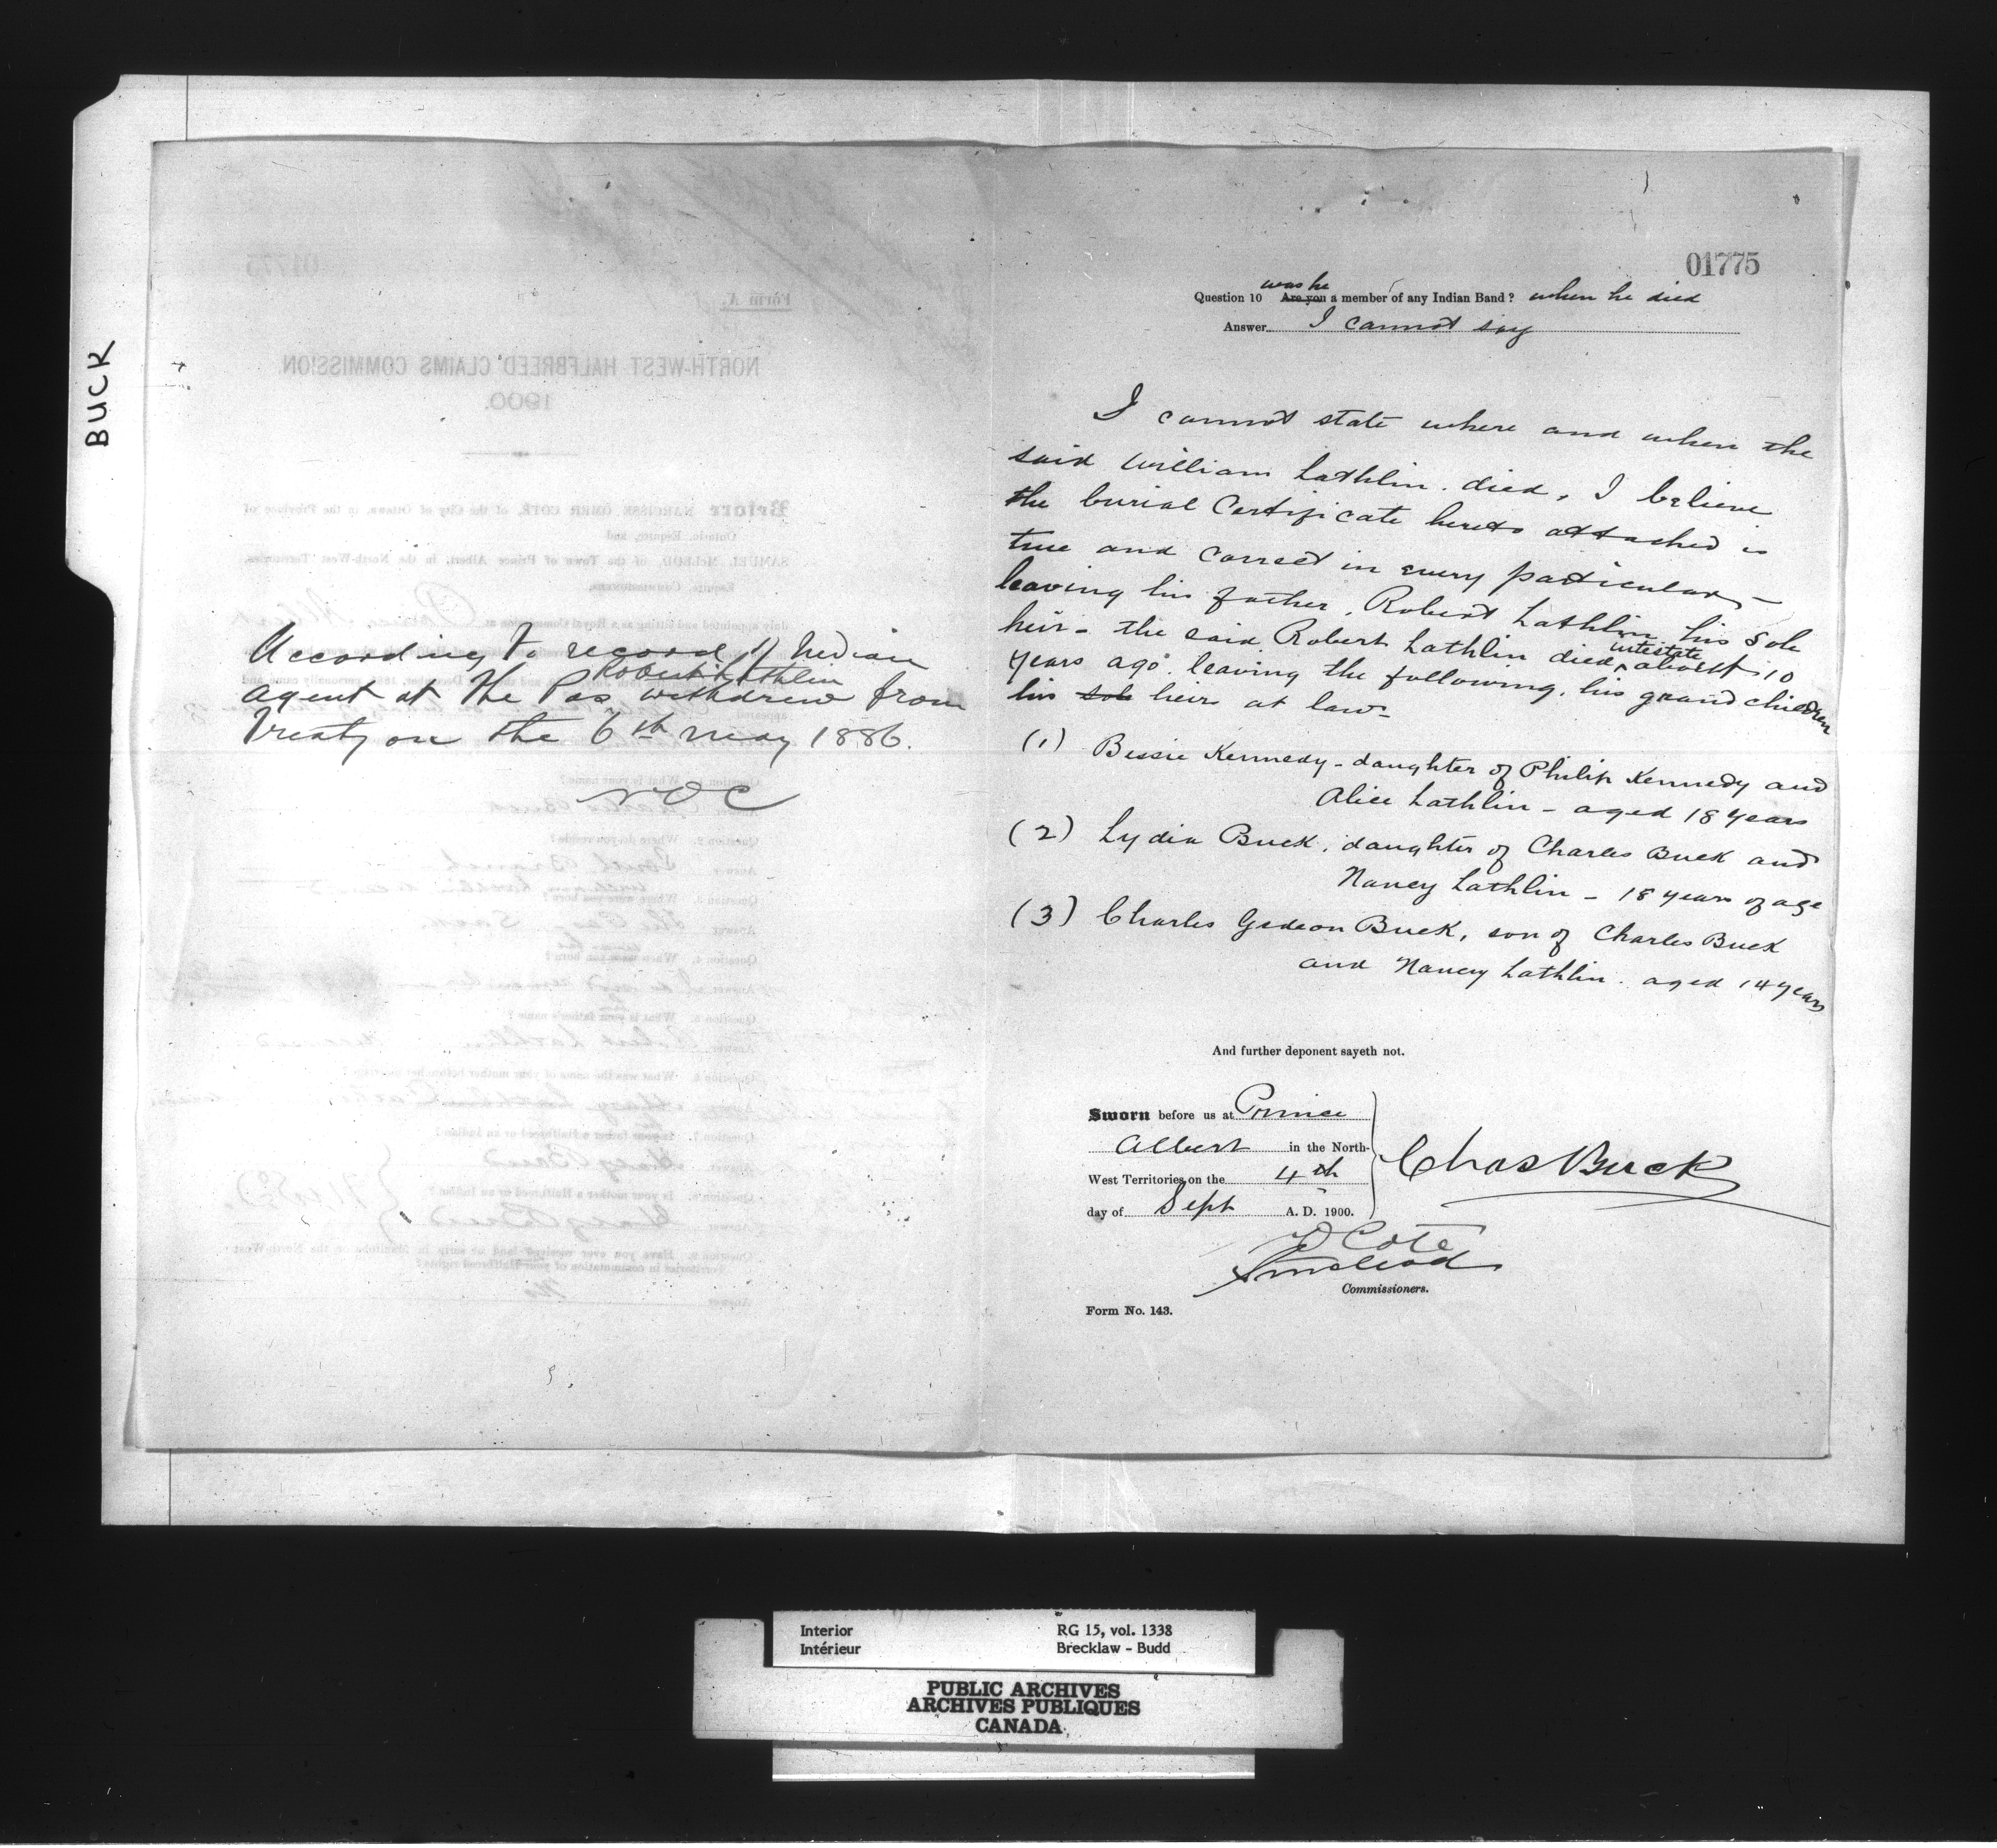 BUCK
According to record of Indian
Robert Lathlin
agent at the Pas, withdrew from
Treaty on the 6th May 1886.
NOC
01775
was he
Question 10 Are you a member of any Indian Band? when he died
Answer I cannot say
I cannot state where and when the
said William Lathlin died, I believe
the burial Certificate hereto attached is
true and correct in every particular,
leaving his father, Robert Lathlin his sole
heir - the said Robert Lathlin died intestate about 10
years ago leaving the following, his grand children
his sole heirs at law-
(1) Bessie Kennedy - daughter of Philip Kennedy and
Alice Lathlin - aged 18 years
(2) Lydia Buck, daughter of Charles Buck and
Nancy Lathlin - 18 years of age
(3) Charles Gedeon Buck, son of Charles Buck
and Nancy Lathlin. aged 14 years
And further deponent sayeth not.
Sworn before us at Prince
Albert in the North-
West Territories on the 4th
day of Sept A. D. 1900.
Chas Buck
Cote
S McLeod
Commissioners.
Form No. 143.
Interior RG 15, vol. 1338
Intérieur Brecklaw - Budd
PUBLIC ARCHIVES
ARCHIVES PUBLIQUES
CANADA